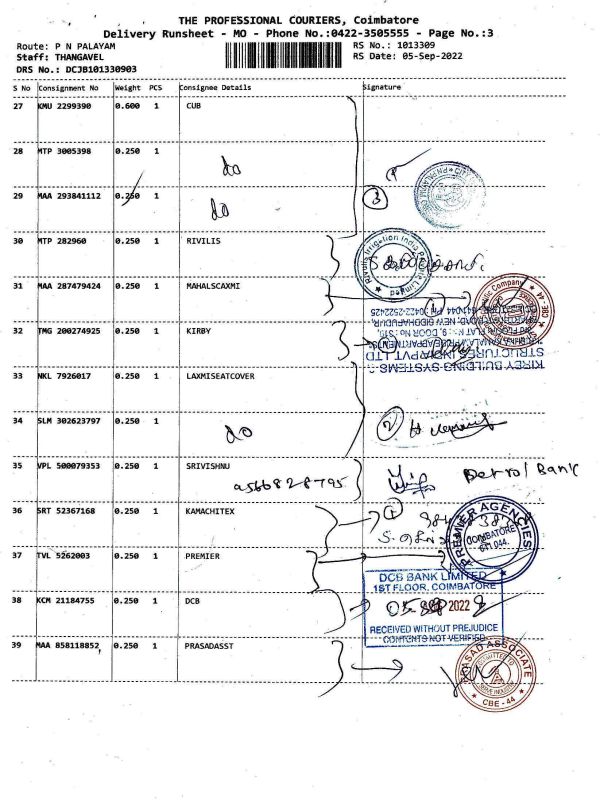 THE PROFESSIONAL COURIERS, Coimbatore
Delivery Runsheet - MO - Phone No.:0422-3505555 - Page No.:3
Route: P N PALAYAM
RS No.: 1013309
Staff: THANGAVEL
RS Date: 05-Sep-2022
DRS No.: DCJB101330903
S No Consignment No Weight PCS Consignee Details Signature
27 KMU 2299390 0.600 1 CUB
28 MTP 3005398 0.250 1 do
29 MAA 293841112 0.250 1 do 3
30 MTP 282960 0.250 1 RIVILIS
Rivulis Irrigation India Private Limited
31 MAA 287479424 0.250 1 MAHALSCAXMI
32 TMG 200274925 0.250 1 KIRBY
KIRBY BUILDING SYSTEMS &
STRUCTURES INDIA PVT LTD
33 NKL 7926017 0.250 1 LAXMISEATCOVER
34 SLM 302623797 0.250 1 do 2
35 VPL 500079353 0.250 1 SRIVISHNU
a566828795
Petrol Bank
36 SRT 52367168 0.250 1 KAMACHITEX
37 TVL 5262003 0.250 1 PREMIER
PREMIER AGENCIES
COIMBATORE
641 044.
38 KCM 21184755 0.250 1 DCB
DCB BANK LIMITED
1ST FLOOR, COIMBATORE
05 SEP 2022
RECEIVED WITHOUT PREJUDICE
CONTENTS NOT VERIFIED
39 MAA 858118852, 0.250 1 PRASADASST
PRASAD ASSOCIATE
CBE - 44